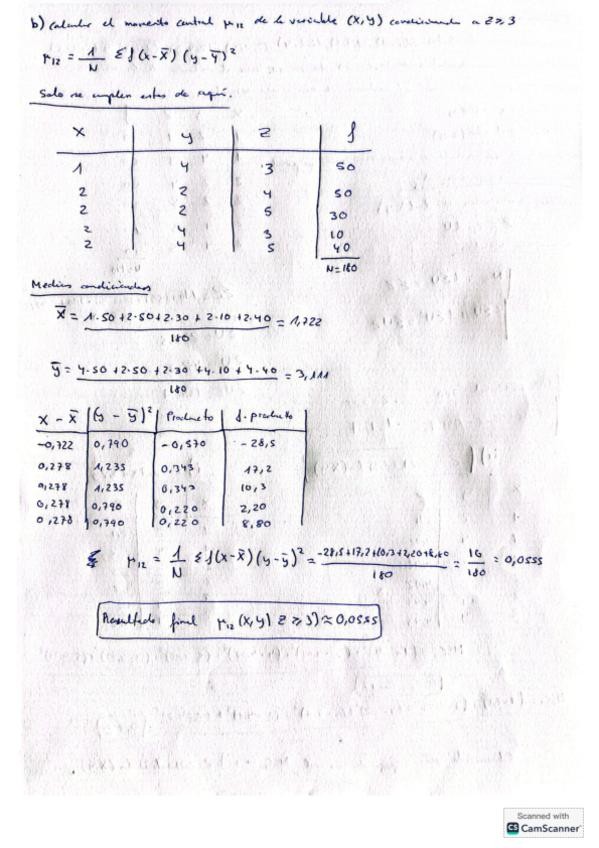 b) Calcular el momento central μ₁₂ de la variable (x,y) condicionado a z≥3
μ₁₂ = 1/N Σf(x-x̄)(y-ȳ)²
Solo se cumplen estas de aquí.
x | y | z | f
1 | 4 | 3 | 50
2 | 2 | 4 | 50
2 | 2 | 5 | 30
2 | 4 | 3 | 10
2 | 4 | 5 | 40
N=180
Medias condicionadas
x̄ = (1·50+2·50+2·30+2·10+2·40)/180 = 1,722
ȳ = (4·50+2·50+2·30+4·10+4·40)/180 = 3,111
x-x̄ | (y-ȳ)² | Producto | f·producto
-0,722 | 0,790 | -0,570 | -28,5
0,278 | 1,235 | 0,343 | 17,2
0,278 | 1,235 | 0,343 | 10,3
0,278 | 0,790 | 0,220 | 2,20
0,278 | 0,790 | 0,220 | 8,80
μ₁₂ = 1/N Σf(x-x̄)(y-ȳ)² = (-28,5+17,2+10,3+2,20+8,80)/180 = 10/180 = 0,0555
Resultado final μ₁₂(x,y) z≥3)≈0,0555
Scanned with
CS CamScanner